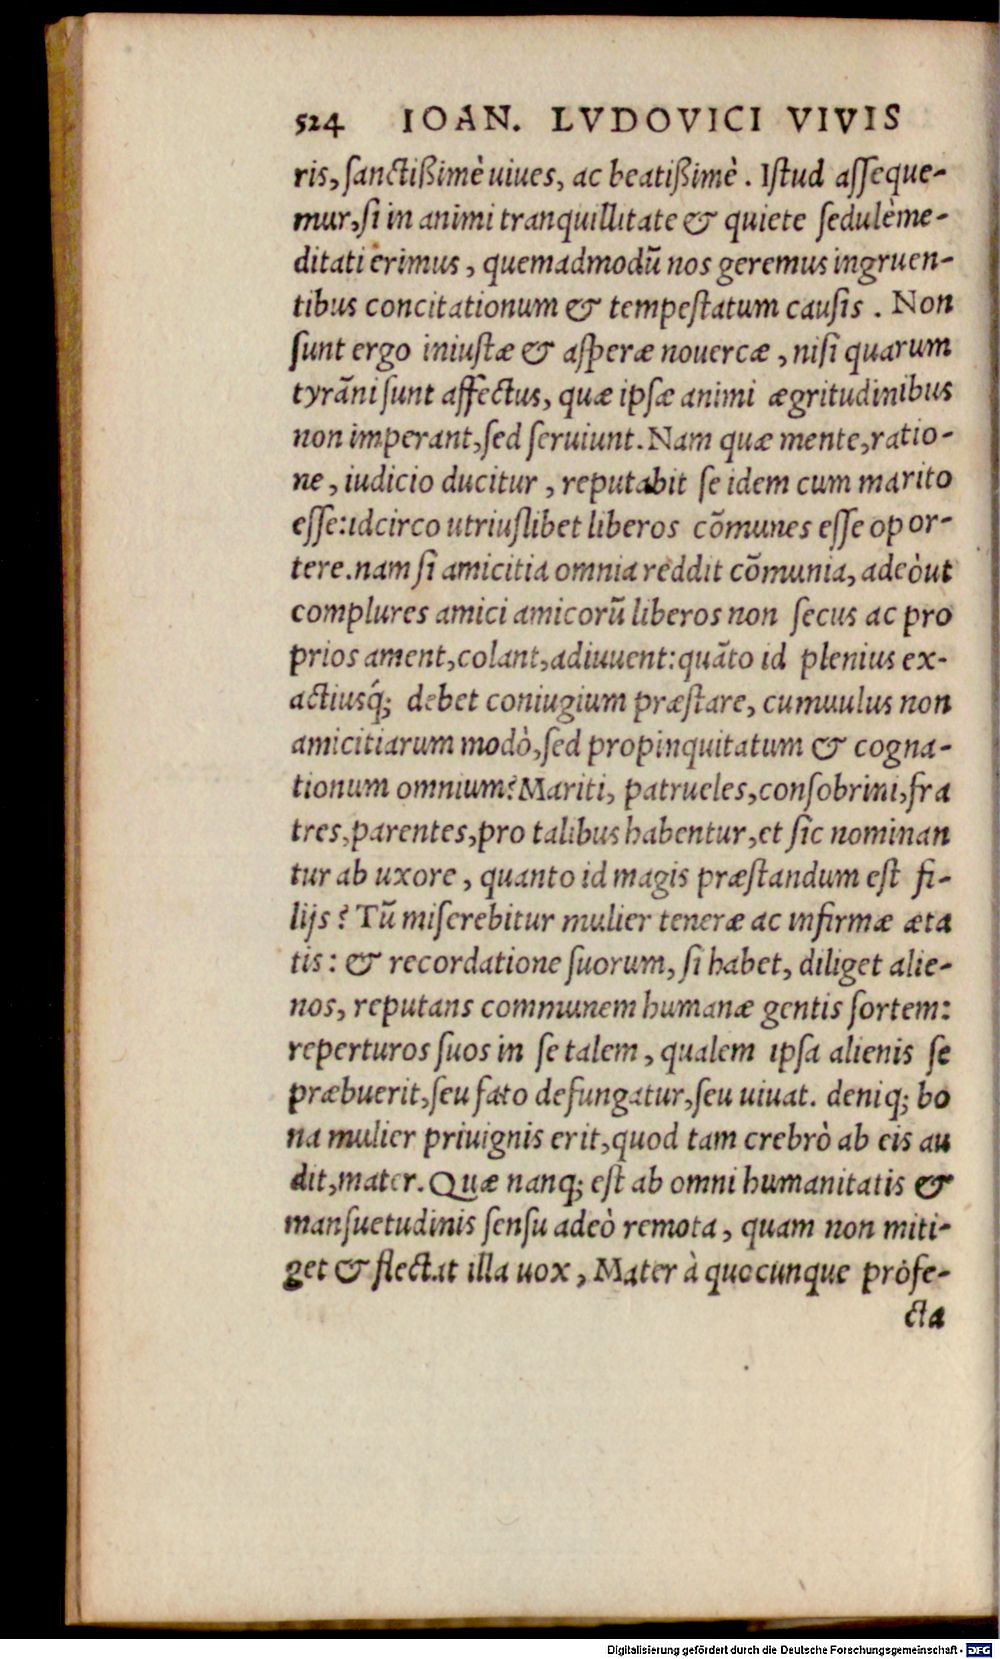 524 IOAN. LVDOVICI VIVIS
ris, ſanctißimè uiues, ac beatißimè. Iſtud aſſeque-
mur, ſi in animi tranquillitate & quiete ſedulè me-
ditati erimus, quemadmodũ nos geremus ingruen-
tibus concitationum & tempeſtatum cauſis. Non
ſunt ergo iniuſtæ & aſperæ nouercæ, niſi quarum
tyrãni ſunt affectus, quæ ipſæ animi ægritudinibus
non imperant, ſed ſeruiunt. Nam quæ mente, ratio-
ne, iudicio ducitur, reputabit ſe idem cum marito
eſſe: idcirco utriuſlibet liberos cõmunes eſſe opor-
tere. nam ſi amicitia omnia reddit cõmunia, adeò ut
complures amici amicorũ liberos non ſecus ac pro
prios ament, colant, adiuuent: quãto id plenius ex-
actiusq́; debet coniugium præſtare, cumuulus non
amicitiarum modò, ſed propinquitatum & cogna-
tionum omnium? Mariti, patrueles, conſobrini, fra
tres, parentes, pro talibus habentur, et ſic nominan
tur ab uxore, quanto id magis præſtandum eſt fi-
lijs? Tũ miſerebitur mulier teneræ ac infirmæ æta
tis: & recordatione ſuorum, ſi habet, diliget alie-
nos, reputans communem humanæ gentis ſortem:
reperturos ſuos in ſe talem, qualem ipſa alienis ſe
præbuerit, ſeu fato defungatur, ſeu uiuat. deniq; bo
na mulier priuignis erit, quod tam crebrò ab eis au
dit, mater. Quæ nanq; eſt ab omni humanitatis &
manſuetudinis ſenſu adeò remota, quam non miti-
get & flectat illa uox, Mater à quocunque profe-
cta
Digitalisierung gefördert durch die Deutsche Forschungsgemeinschaft - DFG